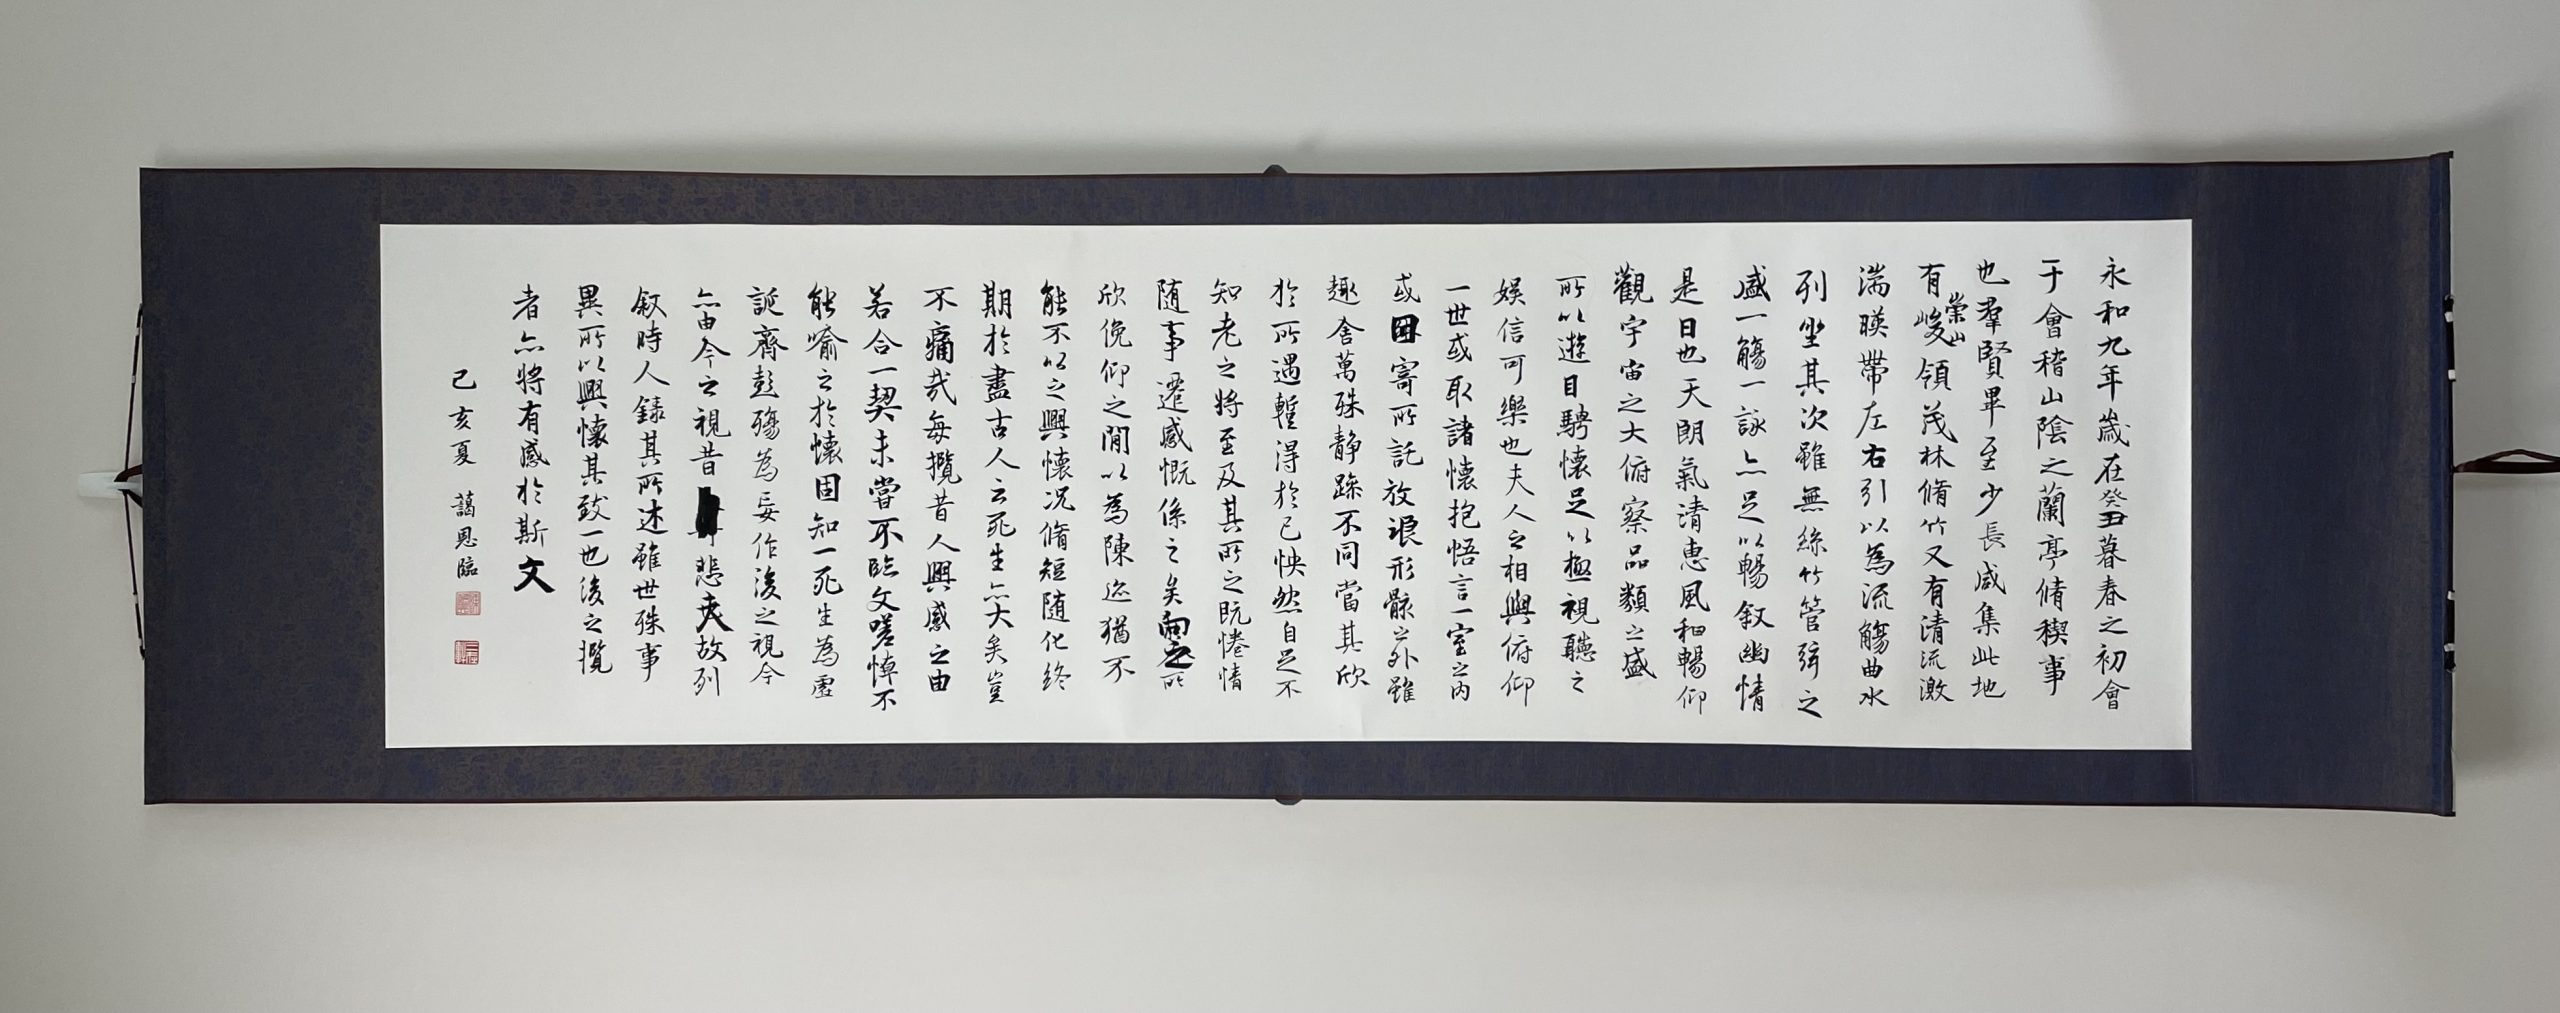 永和九年歲在癸丑暮春之初會
于會稽山陰之蘭亭脩稧事
也羣賢畢至少長咸集此地
有崇山峻領茂林脩竹又有清流激
湍暎帶左右引以為流觴曲水
列坐其次雖無絲竹管弦之
盛一觴一詠亦足以暢敘幽情
是日也天朗氣清惠風和暢仰
觀宇宙之大俯察品類之盛
所以遊目騁懷足以極視聽之
娛信可樂也夫人之相與俯仰
一世或取諸懷抱悟言一室之內
或因寄所託放浪形骸之外雖
趣舍萬殊靜躁不同當其欣
於所遇暫得於己怏然自足不
知老之將至及其所之既惓情
隨事遷感慨係之矣向之所
欣俛仰之閒以為陳迹猶不
能不以之興懷況脩短隨化終
期於盡古人云死生亦大矣豈
不痛哉每攬昔人興感之由
若合一契未嘗不臨文嗟悼不
能喻之於懷固知一死生為虛
誕齊彭殤為妄作後之視今
亦由今之視昔悲夫故列
敘時人錄其所述雖世殊事
異所以興懷其致一也後之攬
者亦將有感於斯文
己亥夏 藹恩臨